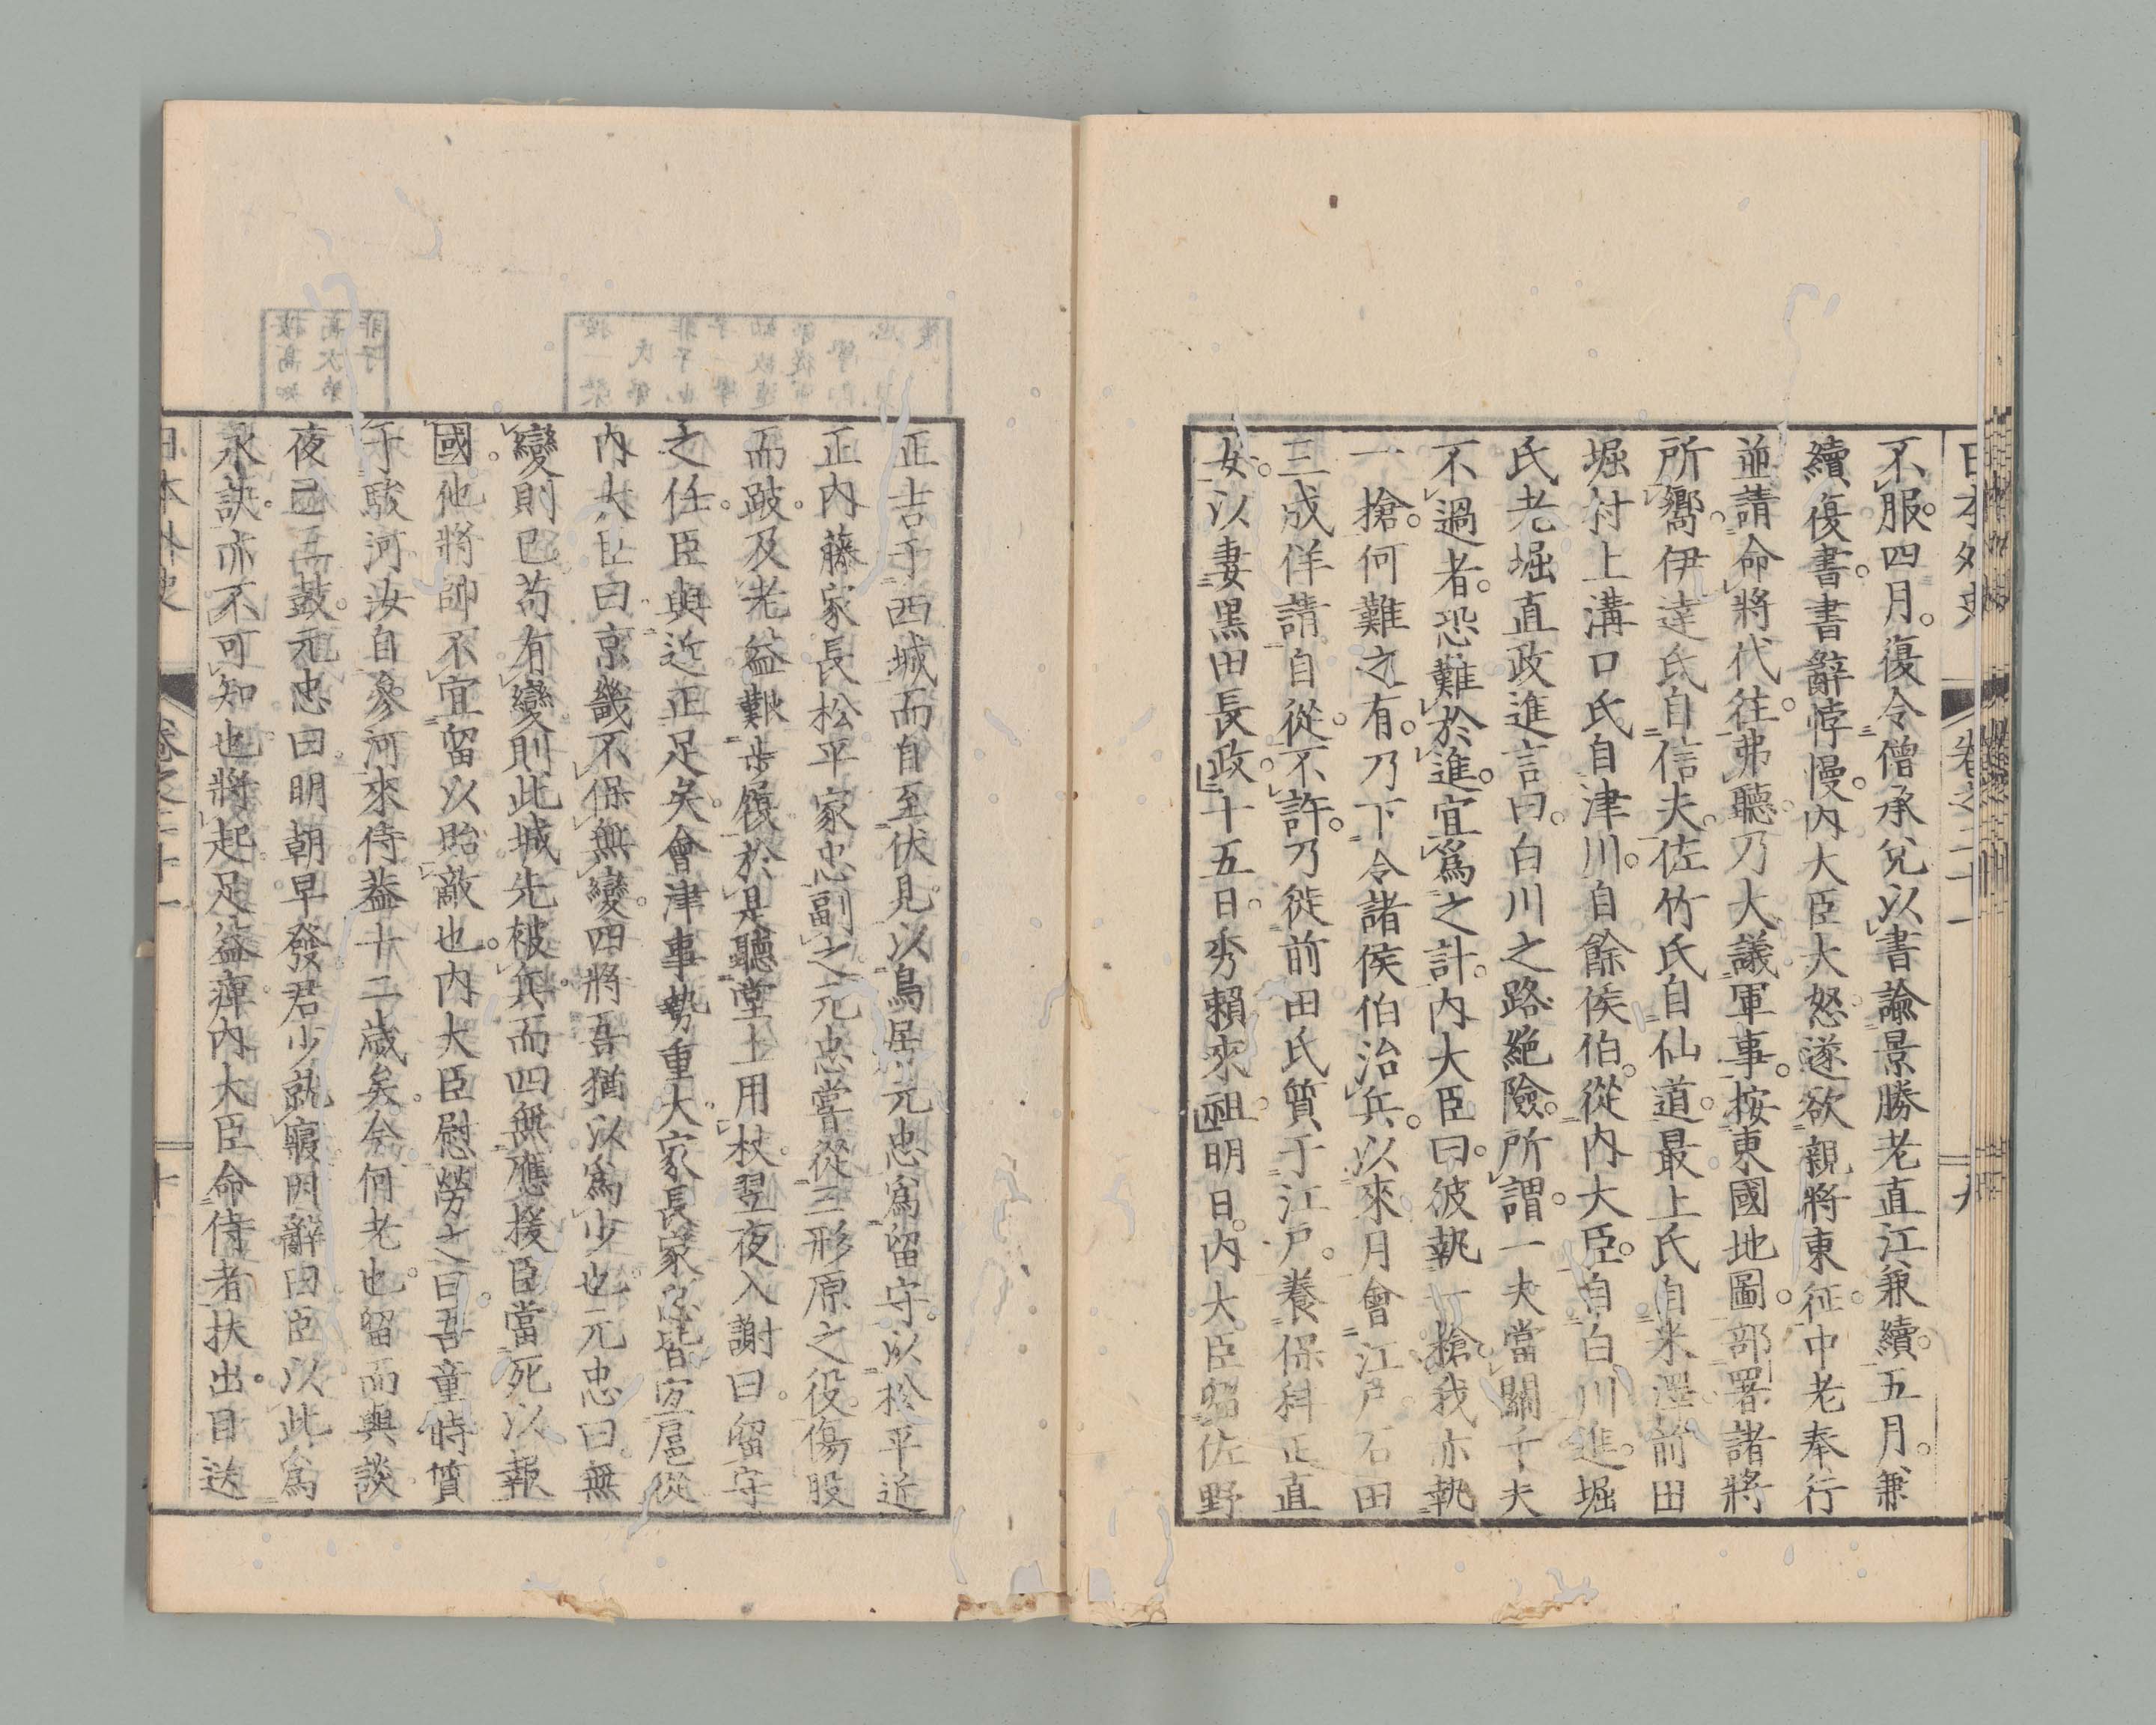 日本外史 卷之二十一 九
不服。四月。復令僧承兌以書諭景勝老直江兼續。五月。兼
續復書。書辭悖慢。內大臣大怒。遂欲親將東征。中老奉行
並請命將代往。弗聽。乃大議軍事。按東國地圖。部署諸將
所嚮。伊達氏自信夫。佐竹氏自仙道。最上氏自米澤。前田
堀村上溝口氏自津川。自餘侯伯。從內大臣。自白川進。堀
氏老堀直政進言曰。白川之路絕險。所謂一夫當關千夫
不過者。恐難於進。宜爲之計。內大臣曰。彼執一槍。我亦執
一槍。何難之有。乃下令諸侯伯治兵。以來月會江戶。石田
三成佯請自從。不許。乃徙前田氏質于江戶。養保科正直
女。以妻黑田長政。十五日。秀賴來祖。明日。內大臣留佐野
正吉于西城而自至伏見。以鳥居元忠爲留守。以松平近
正內藤家長松平家忠副之。元忠嘗從三形原之役。傷股
而跛。及老益艱步履。於是聽堂上用杖。翌夜入謝曰。留守
之任。臣與近正足矣。會津事勢重大。家長家忠皆宜扈從
內大臣曰。京畿不保無變。四將吾猶以爲少也。元忠曰。無
變則已。苟有變。則此城先被兵。而四無應援。臣當死以報
國。他將帥不宜留以貽敵也。內大臣慰勞之曰。吾童時質
于駿河。汝自參河來侍。蓋十二歲矣。今何老也。留而與談。
夜已五鼓。元忠曰。明朝早發。君少就寢。因辭曰。臣以此爲
永訣。亦不可知也。將起。足益痺。內大臣命侍者扶出。目送
日本外史 卷之二十一 十